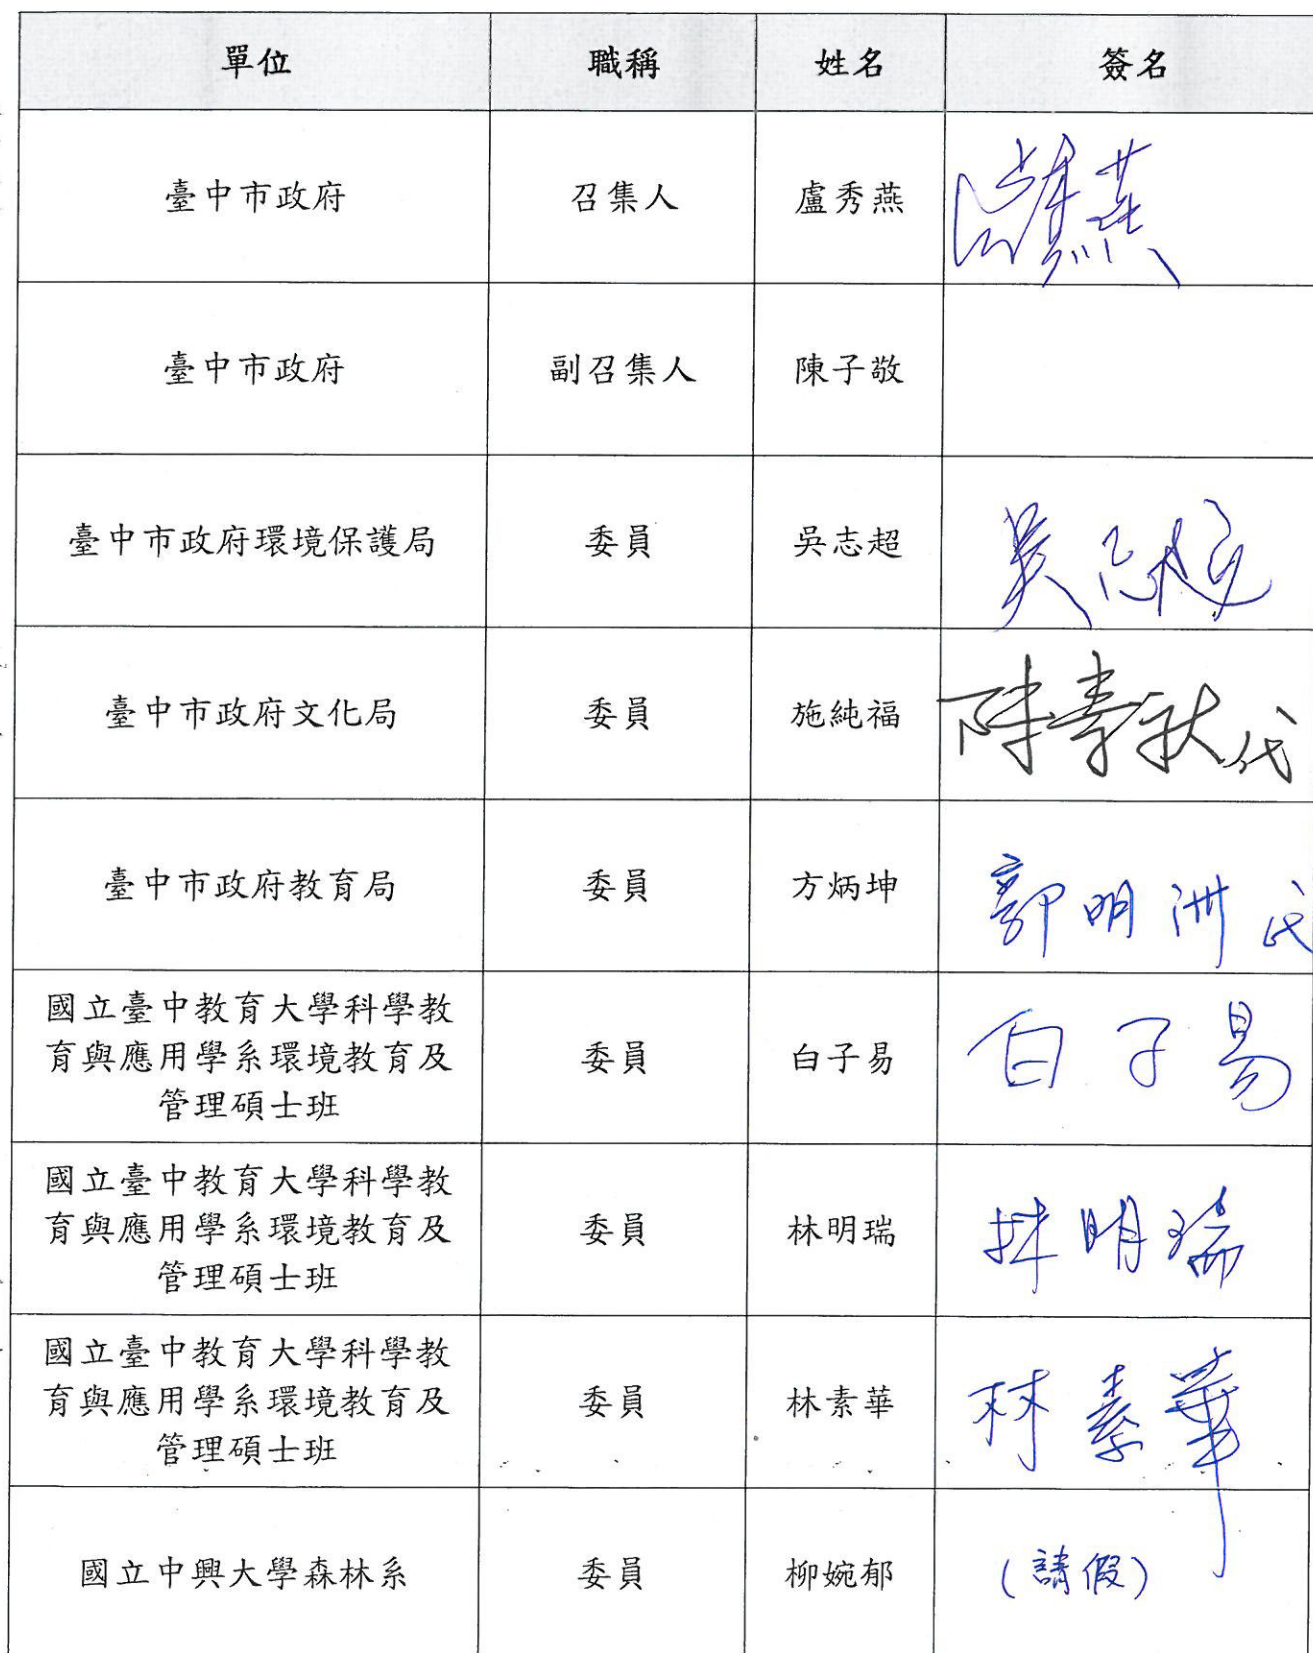 單位 職稱 姓名 簽名
臺中市政府 召集人 盧秀燕 盧秀燕
臺中市政府 副召集人 陳子敬
臺中市政府環境保護局 委員 吳志超 吳志超
臺中市政府文化局 委員 施純福 代
臺中市政府教育局 委員 方炳坤 郭明洲代
國立臺中教育大學科學教
育與應用學系環境教育及 委員 白子易 白子易
管理碩士班
國立臺中教育大學科學教
育與應用學系環境教育及 委員 林明瑞 林明瑞
管理碩士班
國立臺中教育大學科學教
育與應用學系環境教育及 委員 林素華 林素華
管理碩士班
國立中興大學森林系 委員 柳婉郁 (請假)